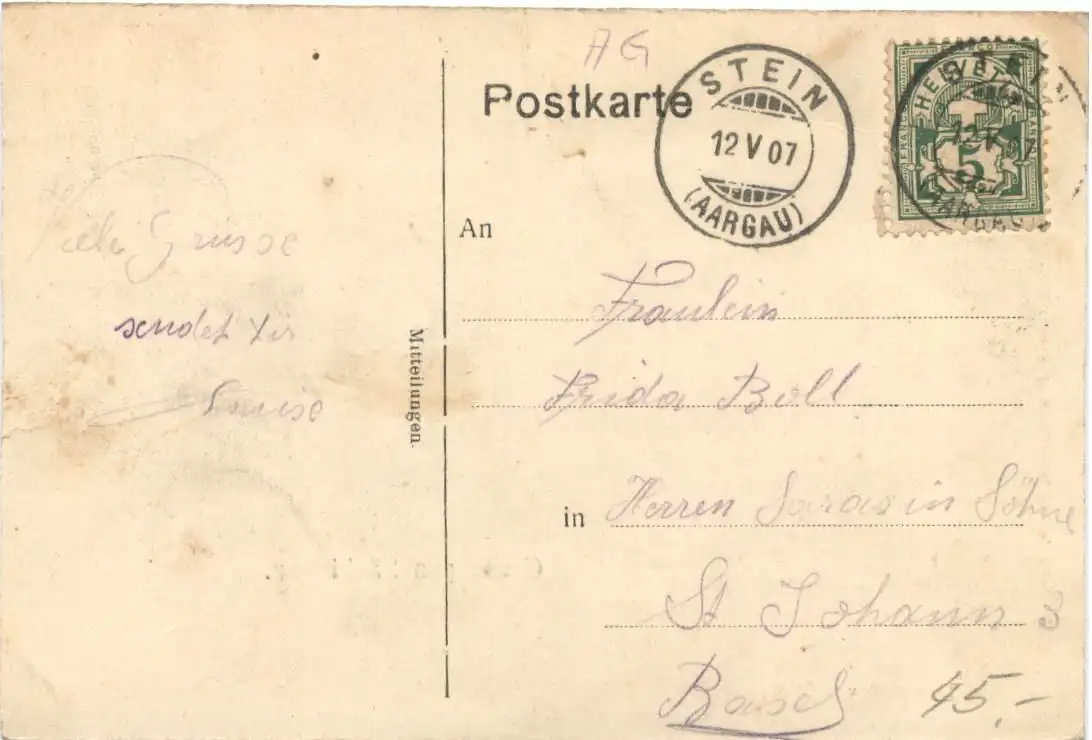 AG
Postkarte
STEIN
12 V 07
(AARGAU)
FRANCO
HELVETIA
5
STEIN
12 V 07
(AARGAU)
Grüsse
sendet Dir
Louise
Mitteilungen.
An
Fräulein
Frida Boll
in
Herren Sarasin Söhne
St Johann
Basel
45.-